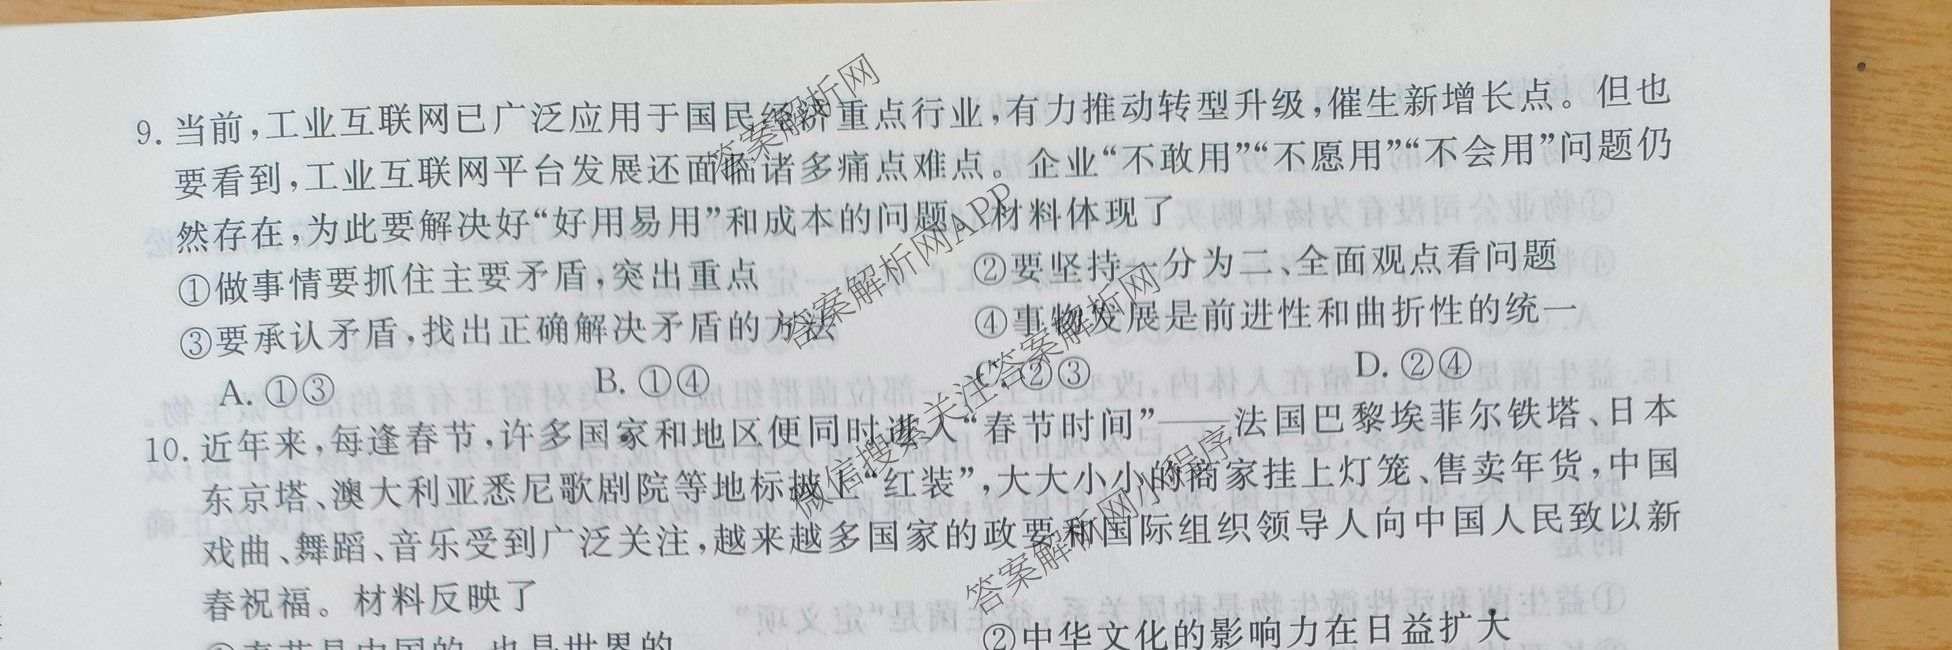 9. 当前,工业互联网已广泛应用于国民经济重点行业,有力推动转型升级,催生新增长点。但也
要看到,工业互联网平台发展还面临诸多痛点难点。企业“不敢用”“不愿用”“不会用”问题仍
然存在,为此要解决好“好用易用”和成本的问题。材料体现了
①做事情要抓住主要矛盾,突出重点 ②要坚持一分为二、全面观点看问题
③要承认矛盾,找出正确解决矛盾的方法 ④事物发展是前进性和曲折性的统一
A. ①③ B. ①④ C. ②③ D. ②④
10. 近年来,每逢春节,许多国家和地区便同时进入“春节时间”——法国巴黎埃菲尔铁塔、日本
东京塔、澳大利亚悉尼歌剧院等地标披上“红装”,大大小小的商家挂上灯笼、售卖年货,中国
戏曲、舞蹈、音乐受到广泛关注,越来越多国家的政要和国际组织领导人向中国人民致以新
春祝福。材料反映了
①春节是中国的,也是世界的 ②中华文化的影响力在日益扩大
答案解析网
答案解析网APP
答案解析网
微信搜索关注答案解析网
答案解析网小程序